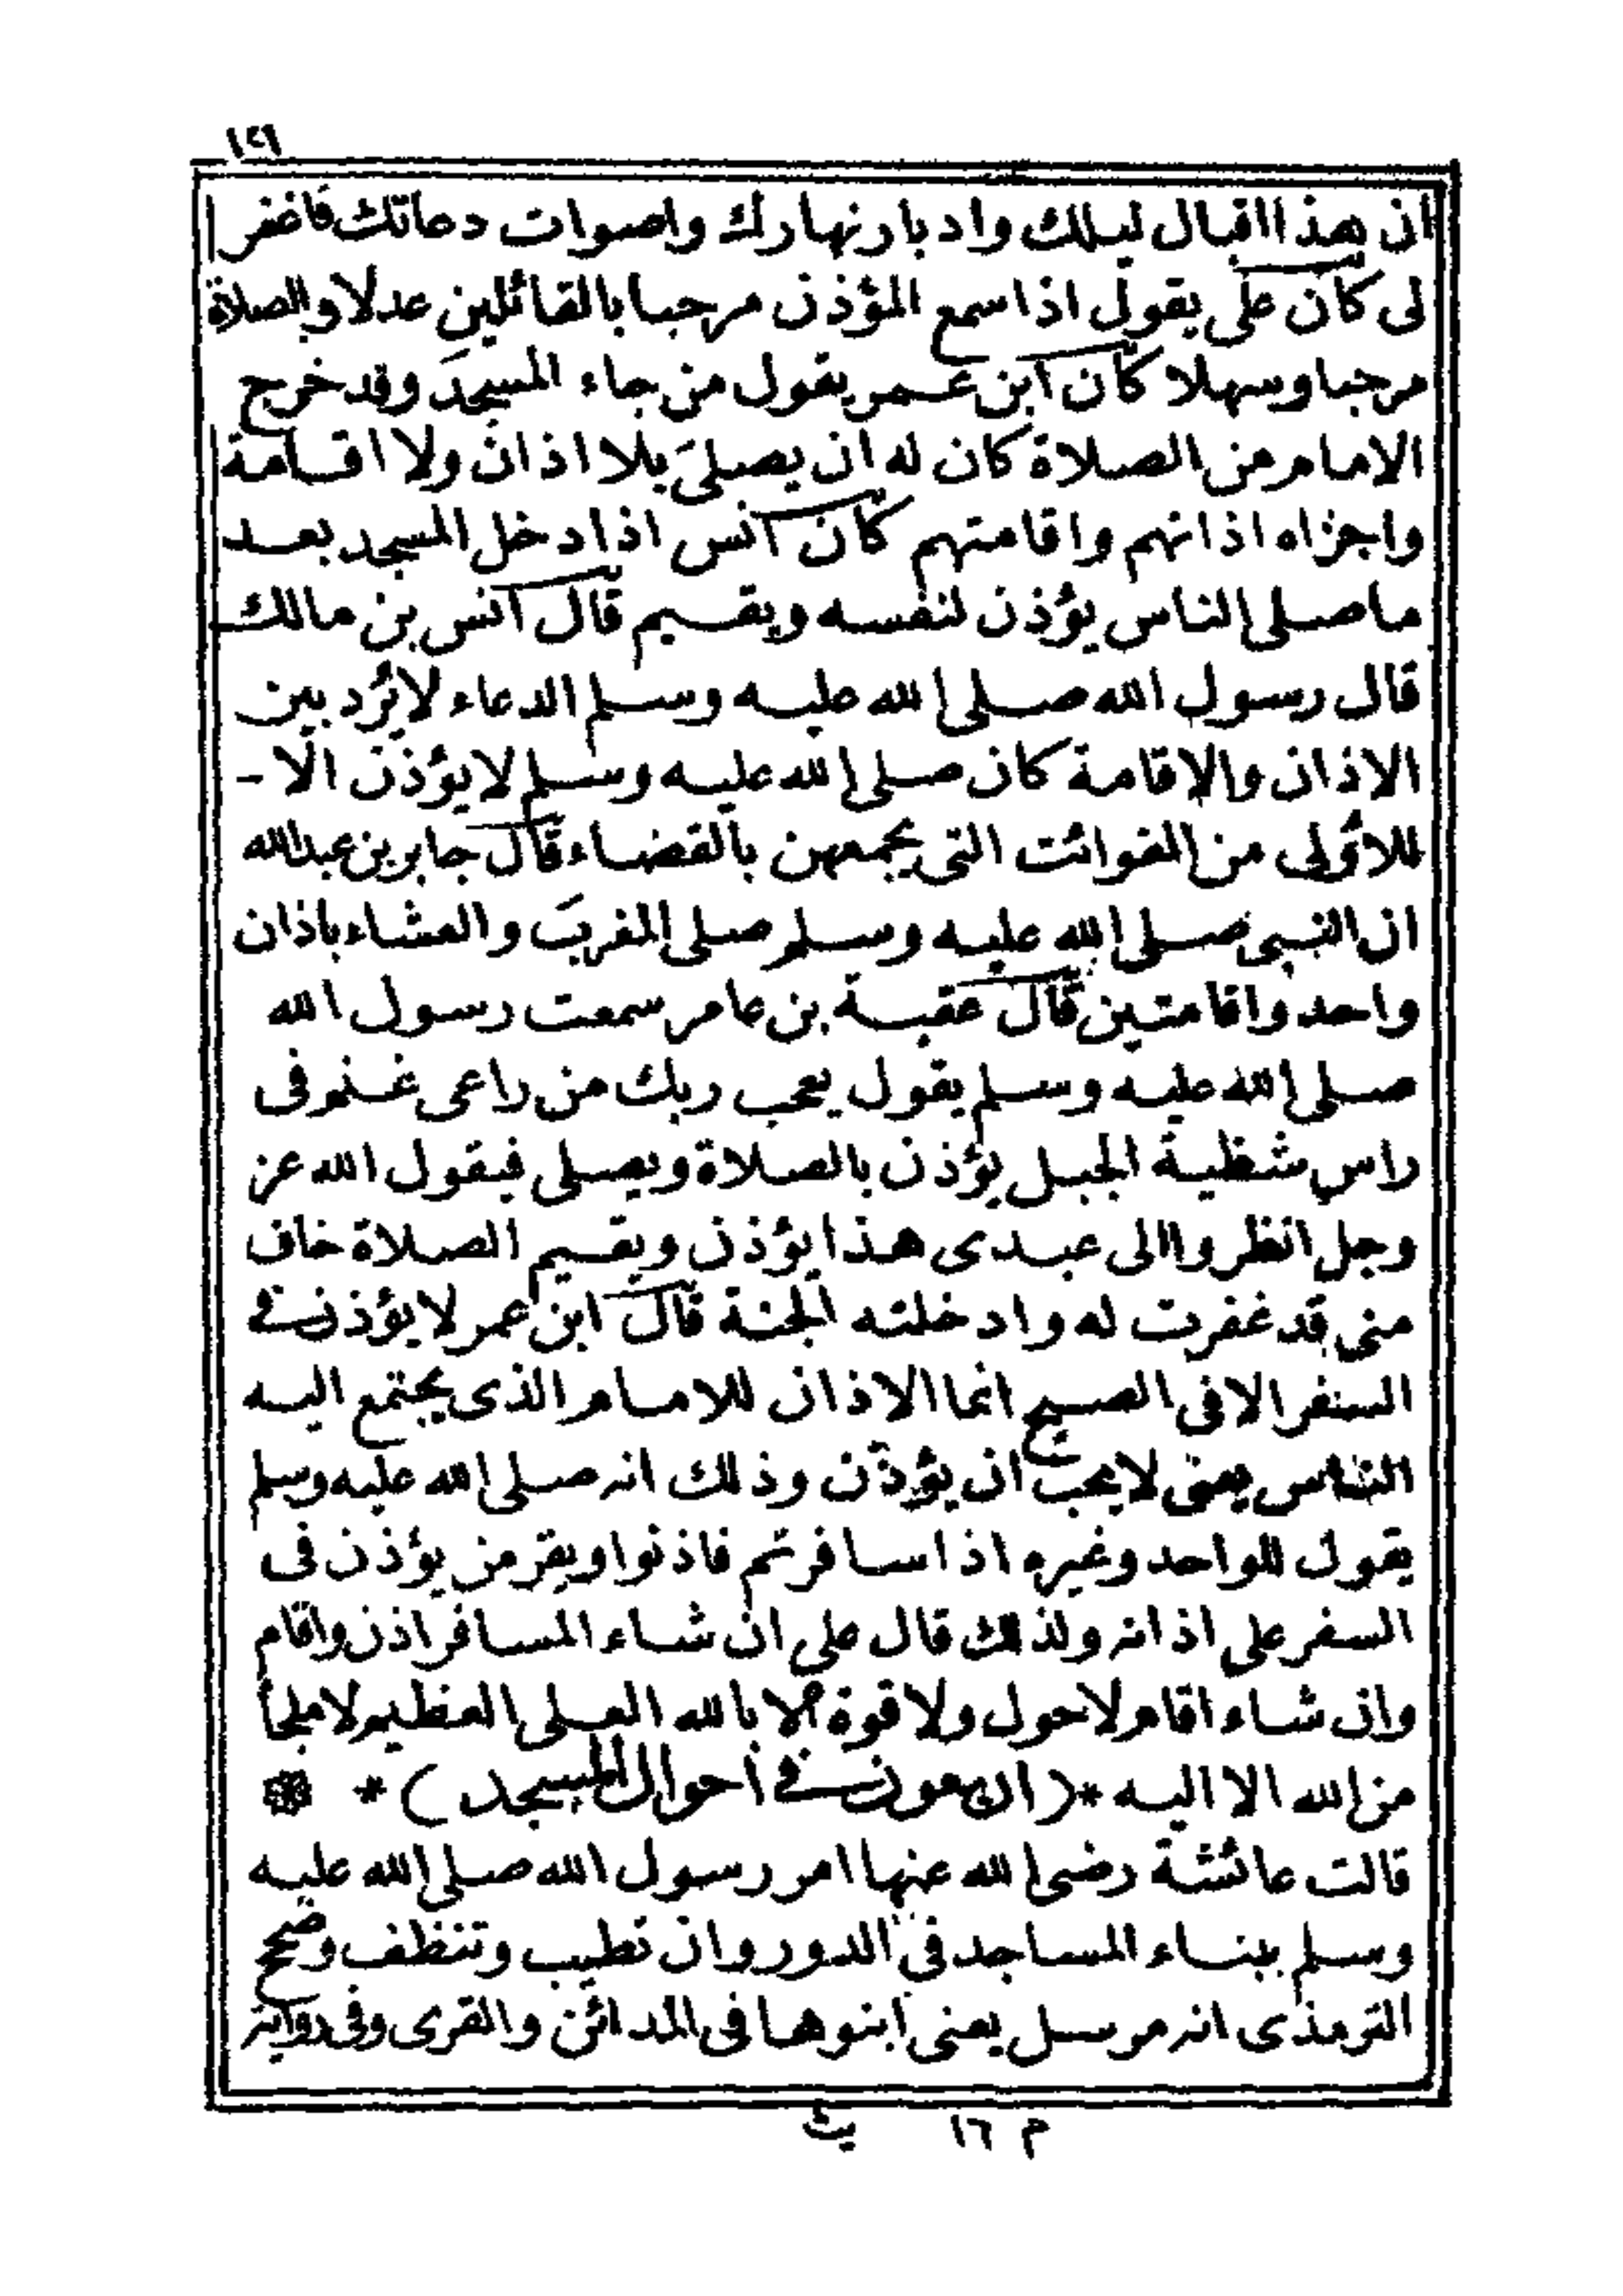 ١٢١
ان هذا اقبال ليلك وادبار نهارك واصوات دعاتك فاغفر
لى كان على يقول اذا سمع المؤذن مرحبا بالقائلين عدلا وبالصلاة
مرحبا وسهلا كان ابن عمر يقول من جاء المسجدَ وقد خرج
الامام من الصلاة كان له ان يصلىَ بلا اذان ولا اقامة
واجزاه اذانهم واقامتهم كان انس اذا دخل المسجد بعد
ما صلى الناس يؤذن لنفسه ويقيم قال انس بن مالك
قال رسول الله صلى الله عليه وسلم الدعاء لا يُرد بين
الاذان والاقامة كان صلى الله عليه وسلم لا يؤذن الا -
للأولى من الفوائت التى يجمعهن بالقضاء قال جابر بن عبدالله
ان النبى صلى الله عليه وسلم صلى المغربَ والعشاء باذان
واحد واقامتين قال عقبة بن عامر سمعت رسول الله
صلى الله عليه وسلم يقول يعجب ربك من راعى غنم فى
راس شظية الجبل يؤذن بالصلاة ويصلى فيقول الله عز
وجل انظروا الى عبدى هذا يؤذن ويقيم الصلاة خاف
منى قد غفرت له وادخلته الجنة قال ابن عمر لا يؤذن فى
السفر الا فى الصبح انما الاذان للامام الذى يجتمع اليه
الناس يعنى لا يجب ان يؤذن وذلك انه صلى الله عليه وسلم
يقول للواحد وغيره اذا سافرتم فاذنوا ويقر من يؤذن فى
السفر على اذانه ولذلك قال على ان شاء المسافر اذن واقام
وان شاء اقام لا حول ولا قوة الا بالله العلى العظيم لا ملجأ
من الله الا اليه *(اربعون فى أحوال المسجد)*
قالت عائشة رضى الله عنها امر رسول الله صلى الله عليه
وسلم ببناء المساجد فى الدور وان تطيب وتنظف وصحح
الترمذى انه مرسل يعنى ابنوها فى المدائن والقرى وفى رواية
م ١٦